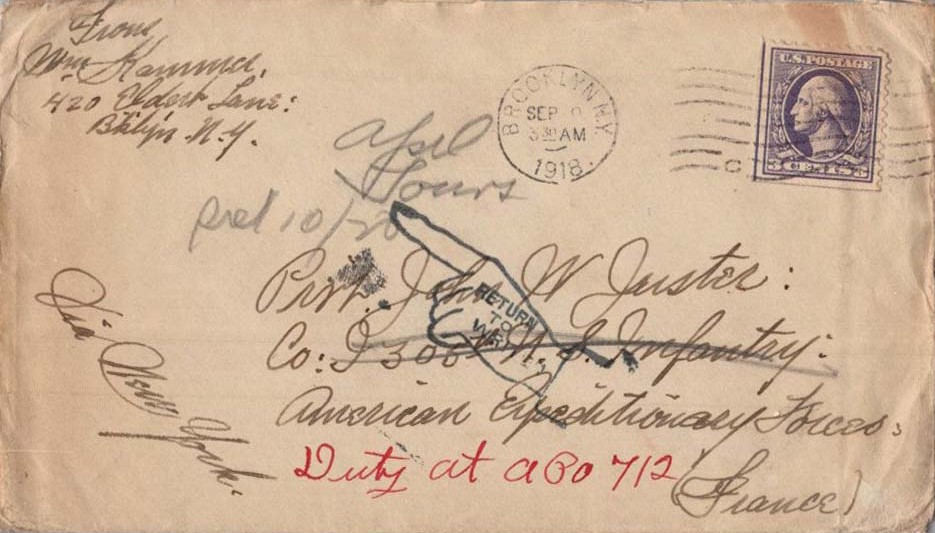 From
Wm Kammer,
420 Eldert Lane:
Bklyn. N.Y.
BROOKLYN, N.Y.
SEP 9
3 30 AM
1918
U.S. POSTAGE
3 CENTS 3
April
Tours
10/20
RETURN
TO
WRITER
Privt. John W Juster:
Co: I 306th N. S. Infantry:
American Expeditionary Forces:
(France)
Via New York.
Duty at APO 712